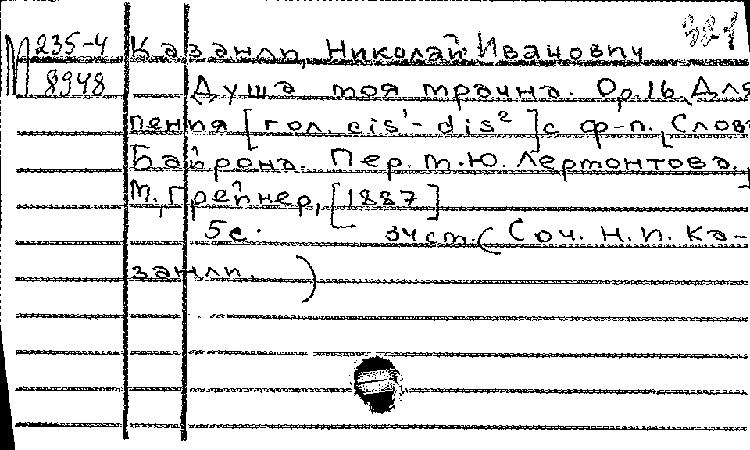 М 235-4
8948
381
Казанли, Николай Иванович
Душа моя мрачна. Op. 16. Для
пения [гол. cis¹ - dis²] с ф-п. [Слова
Байрона. Пер. М.Ю. Лермонтова.]
М., Грейнер, [1887]
5 с. (Соч. Н.И. Ка-
занли. )